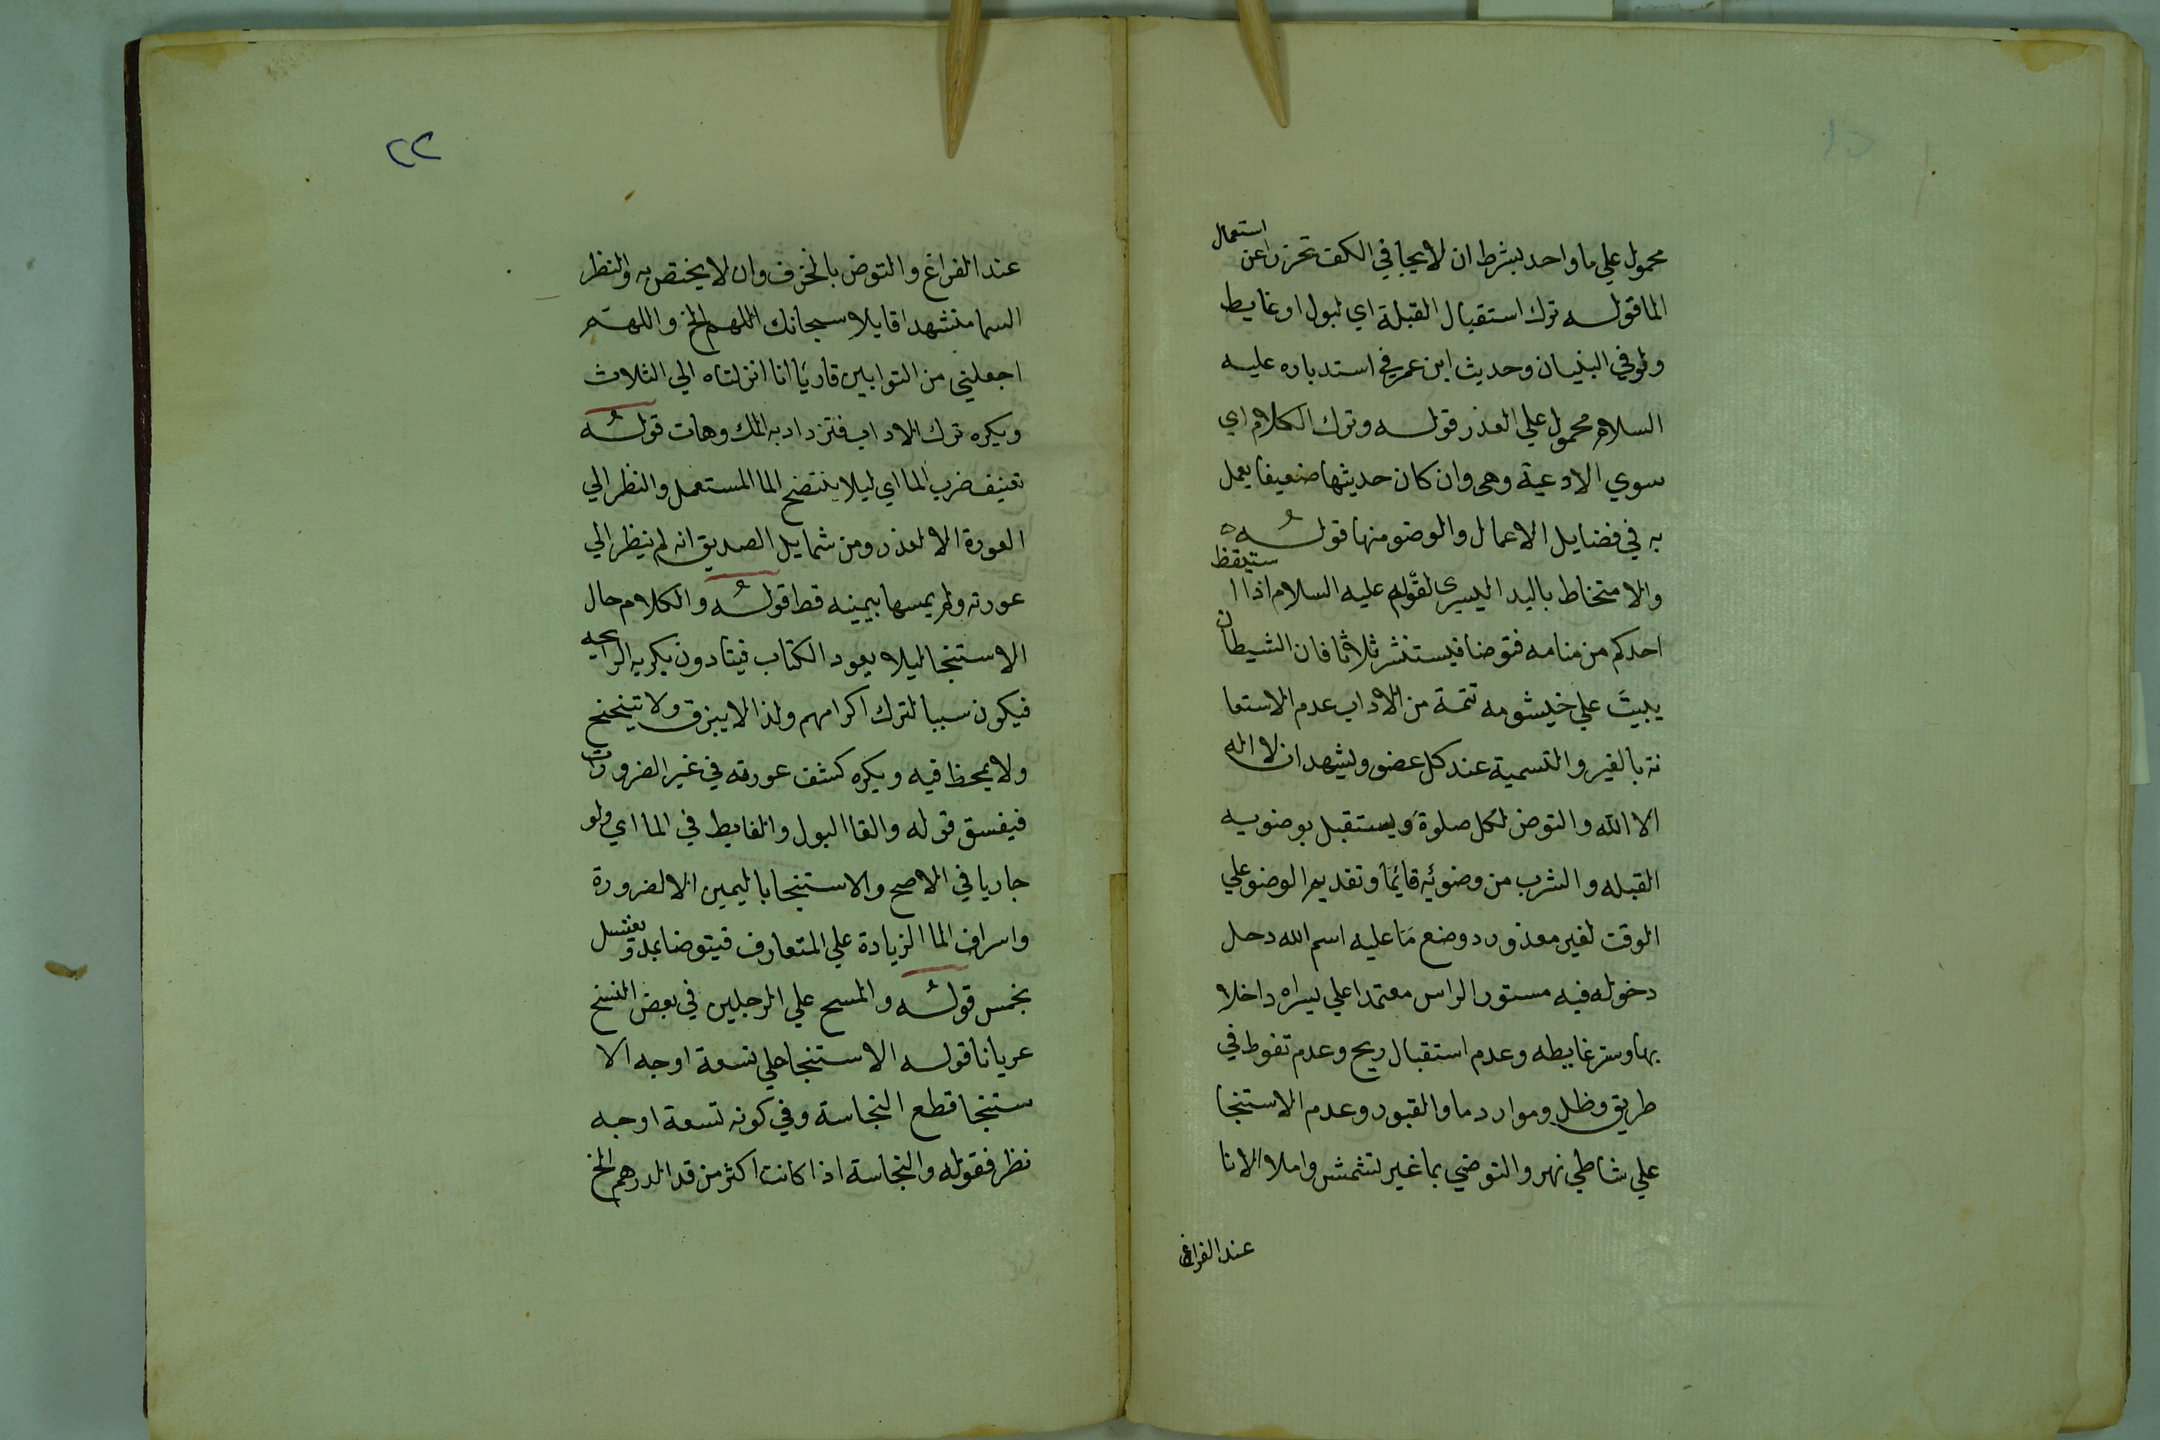 محمول علي ما واحد بشرط ان لا يجافي الكف تحرزا عن استعمال
الما قوله ترك استقبال القبلة اي لبول او غايط
ولو في البنيان وحديث ابن عمر في استدباره عليه
السلام محمول علي العذر قوله وترك الكلام اي
سوي الادعية وهي وان كان حديثها ضعيفا يعمل
به في فضايل الاعمال والوضو منها قوله
والامتخاط باليد اليسري لقوله عليه السلام اذا ا ستيقظ
احدكم من منامه فتوضا فليستنثر ثلاثا فان الشيطان
يبيت علي خيشومه تتمة من الاداب عدم الاستعا
نة بالغير والتسمية عند كل عضو ويشهد ان لا اله
الا الله والتوضى لكل صلوة ويستقبل بوضويه
القبله والشرب من وضوئه قائما وتقديم الوضو علي
الوقت لغير معذور د وضع ما عليه اسم الله دحل
دخوله فيه مستور الراس معتمدا علي يسراه داخلا
بها وستر غايطه وعدم استقبال ريح وعدم تغوط في
طريق وظل وموارد ما والقبور وعدم الاستنجا
علي شاطي نهر والتوضي بما غير لتشمش واملا الانا
عند الفراغ
٢٢
عند الفراغ والتوضى بالخزف وان لا يختص به والنظر
السما متشهدا قايلا سبحانك اللهم الخ واللهم
اجعلني من التوابين قاريًا انا انزلناه الي الثلاث
ويكره ترك الاداب فتزداد به الملك وهات قوله
تعنيف ضرب الما اي ليلا ينتضح الما المستعمل والنظر الي
العورة الا لعذر ومن شمايل الصديق انه لم ينظر الي
عورته ولم يمسها بيمينه قط قوله والكلام حال
الاستنجا ليلا يعود الكتاب فيتادون بكريه الرايحه
فيكون سببا لترك اكرامهم ولذا لا يبزق ولا يتنحنح
ولا يمخط فيه ويكره كشف عورته في غير الضرورات
فيفسق قوله والقا البول والغايط في الما اي ولو
جاريا في الاصح والاستنجا باليمين الا لضرورة
واسراف الما الزيادة علي المتعارف فيتوضا بمد ويغتسل
بخمس قوله والمسح علي الرجلين في بعض النسخ
عريانا قوله الاستنجا علي تسعة اوجه الا
ستنجا قطع النجاسة وفي كونه تسعة اوجه
نظر فقوله والنجاسة اذا كانت اكثر من قد الدرهم الخ